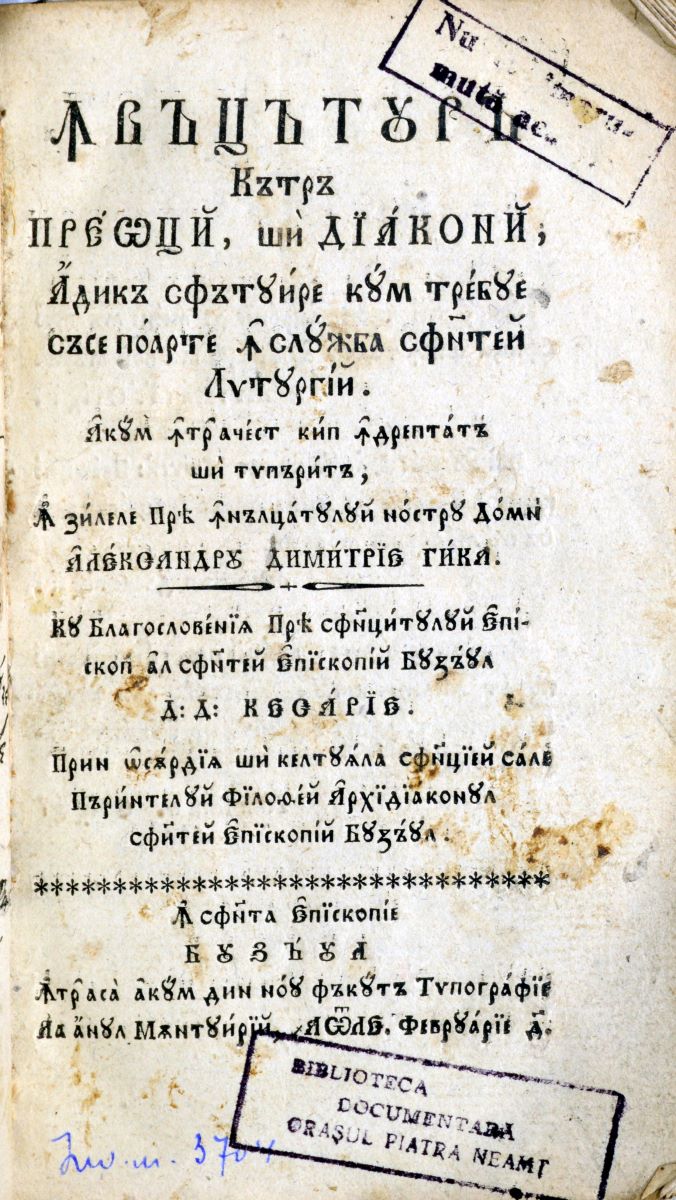 Nu
mută
ꙞВЪЦЪТꙊРѢ
Кътръ
ПРЕ́ѠЦИЙ, шѝ ДЇА́КОНИЙ,
А҆́дикъ сфътꙋи́ре кꙋ́м тре́бꙋе
съсе по́арте ꙟ҆ слꙋ́жба сфи́нтей
Лѵтꙋргі́й.
А҆кꙋ́м ꙟ҆тр҆аче́ст ки́п ꙟ҆дрепта́тъ
шѝ тѵпъри́тъ;
Ꙟ҆ зи́леле Прѣ ꙟ҆нълца́тꙋлꙋй но́стрꙋ До́мн
А҆ЛЕ́КСАНДРꙊ ДИМИ́ТРЇЕ ГИ́КА.
Кꙋ Благослове́нїѧ Прѣ сфи҃нци́тꙋлꙋй Є҆пі́-
скоп а҆л сфи́нтей Є҆пїскопі́й Бꙋзъ́ꙋл
Д: Д: КЕСА́РЇЕ.
Прин ѡ҆сѫ́рдїѧ шѝ келтꙋѧ́ла сфи҃нцїей са́ле
Пъри́нтелꙋй Фїлоѳе́й А҆рхїдїа́конꙋл
сфи́нтей Є҆пїскопі́й Бꙋзъ́ꙋл.
Ꙟ҆ сфи́нта Є҆пїскопі́е
БꙊЗЪ́ꙊЛ
Ꙟ҆тр҆аса̀ а҆кꙋ́м дин но́ꙋ фъкꙋ́тъ Тѵпогра́фїе
Ла а҆́нꙋл Мѫнтꙋи́рїй, ҂АѾЛЕ. Феврꙋа́рїе Д҃.
BIBLIOTECA
DOCUMENTARA
ORAȘUL PIATRA NEAMȚ
3704